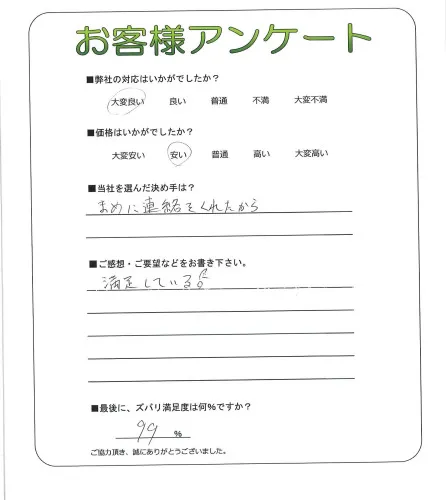 お客様アンケート
■弊社の対応はいかがでしたか?
大変良い 良い 普通 不満 大変不満
■価格はいかがでしたか?
大変安い 安い 普通 高い 大変高い
■当社を選んだ決め手は?
まめに連絡をくれたから
■ご感想・ご要望などをお書き下さい。
満足している
■最後に、ズバリ満足度は何%ですか?
99 %
ご協力頂き、誠にありがとうございました。